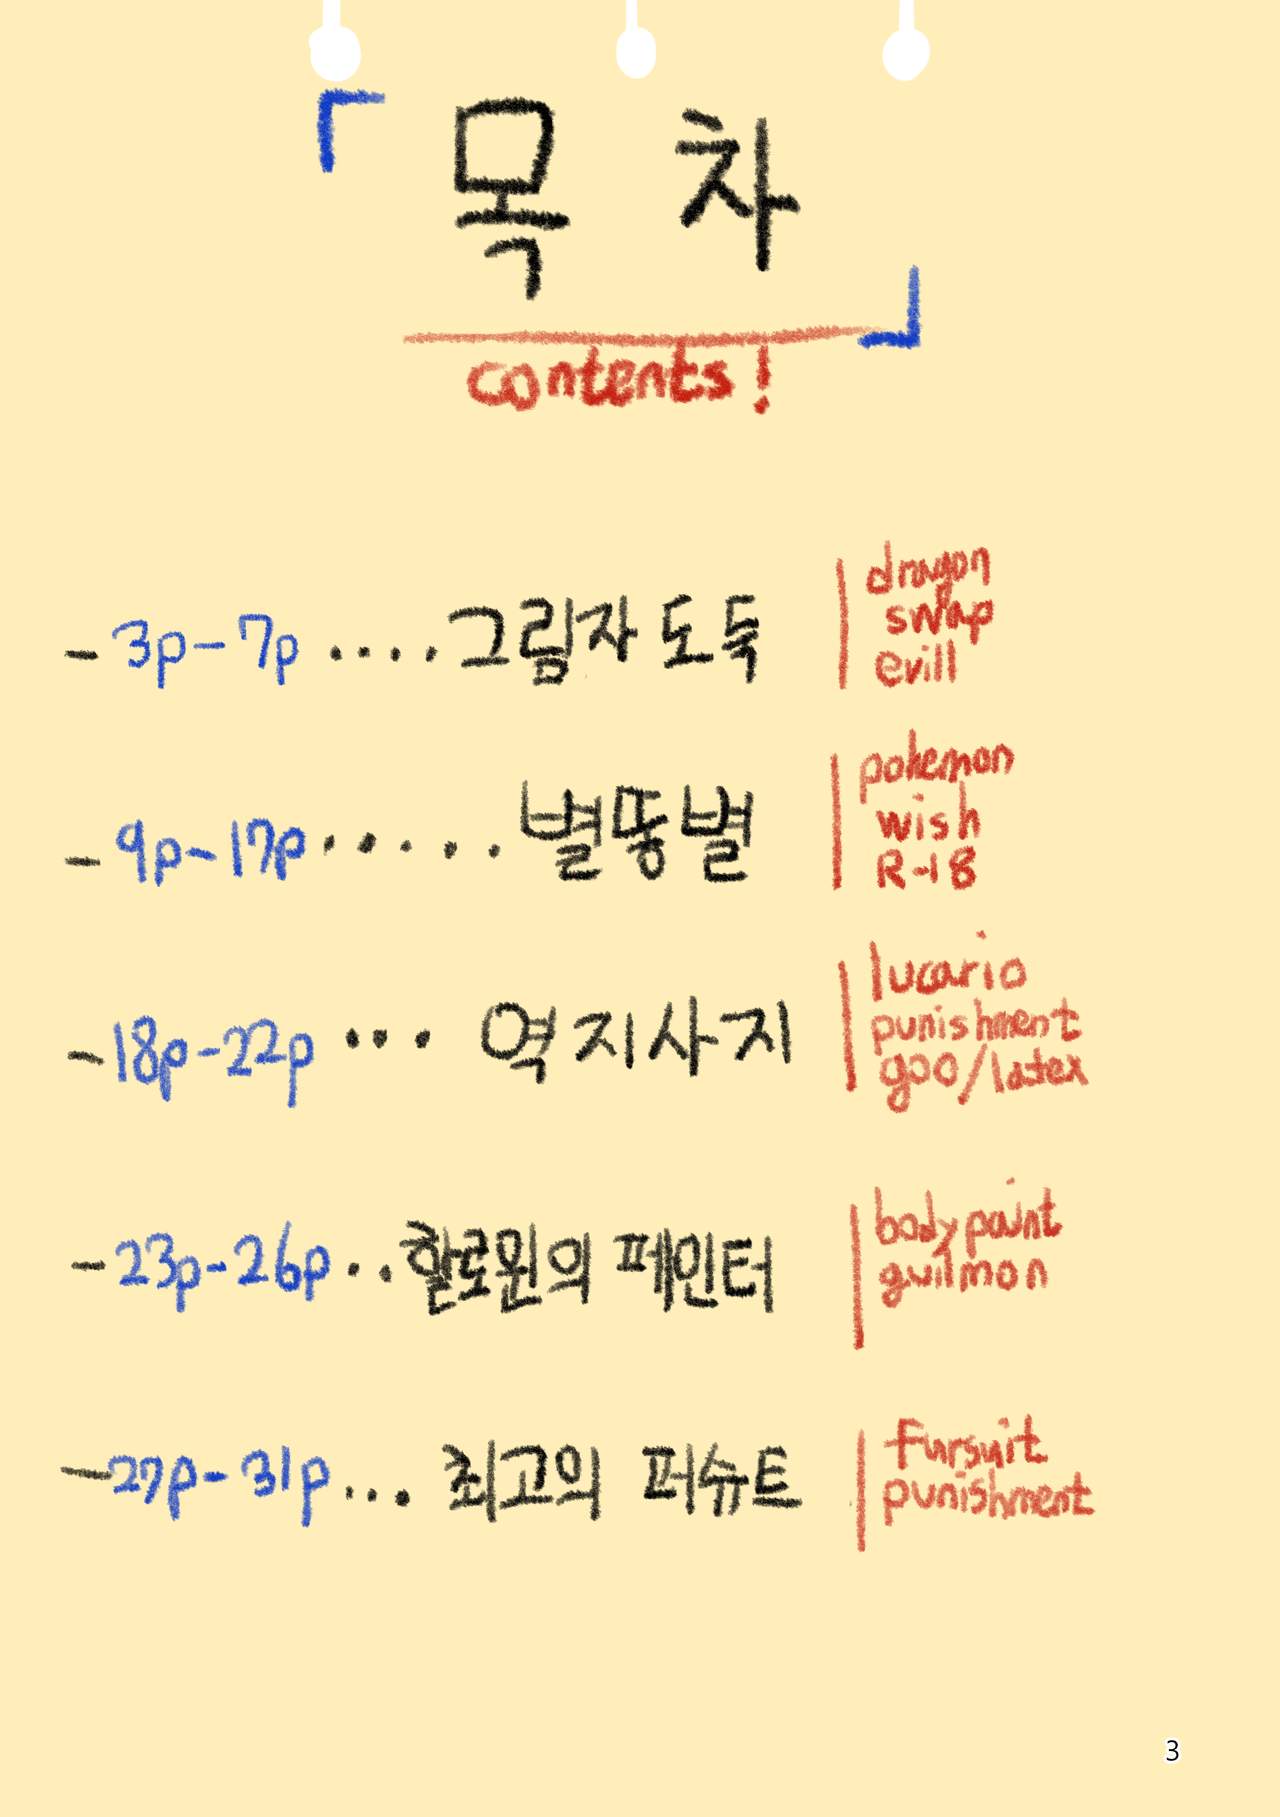 「목 차」
contents!
- 3p - 7p .... 그림자 도둑
dragon
swap
evill
- 9p - 17p ..... 별똥별
pokemon
wish
R-18
- 18p - 22p ... 역지사지
lucario
punishment
goo/latex
- 23p - 26p .. 할로윈의 페인터
body paint
guilmon
- 27p - 31p ... 최고의 퍼슈트
fursuit
punishment
3